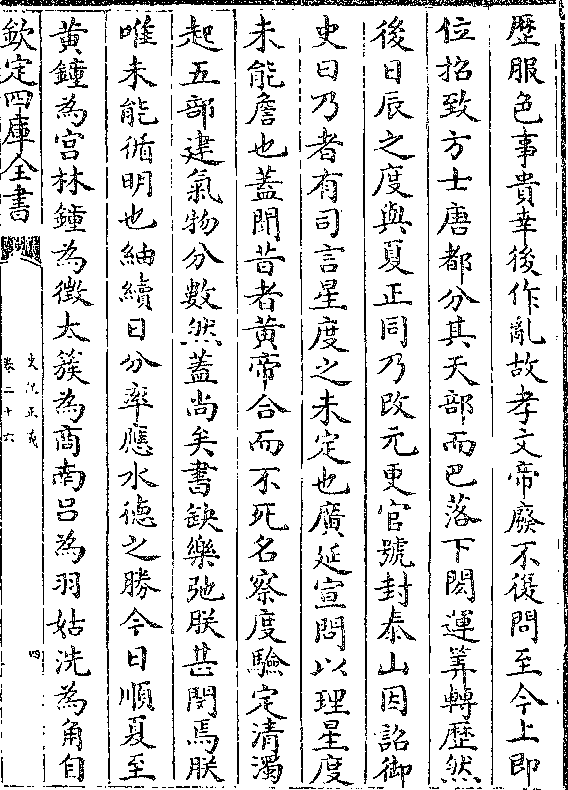 歴服色事貴幸後作亂故孝文帝廢不復問至今上即
位招致方士唐都分其天部而巴落下閎運筭轉歴然
後日辰之度與夏正同乃改元更官號封泰山因詔御
史曰乃者有司言星度之未定也廣延宣問以理星度
未能詹也葢聞昔者黄帝合而不死名察度驗定清濁
起五部建氣物分數然葢尚矣書缺樂弛朕甚閔焉朕
唯未能循明也紬績日分率應水德之勝今日順夏至
黄鍾為宫林鍾為徵太蔟為商南吕為羽姑洗為角自
欽定四庫全書
史記正義
卷二十六
四